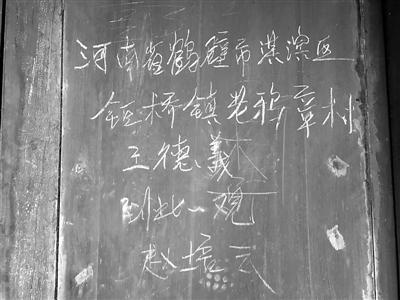 河南省鹤壁市淇滨区
钜桥镇老鸦章村
王德義
到此一观
赵培云